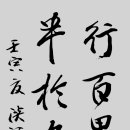 行百里
半於九
壬寅夏